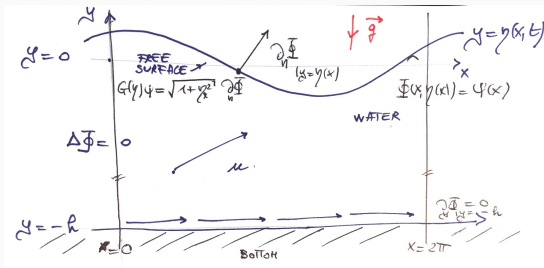 y
y=0
FREE
SURFACE
∂ₙΦ|y=η(x)
g⃗
y=η(x,t)
x
G(η)ψ=√1+ηₓ² ∂ₙΦ
Φ(x,η(x))=ψ(x)
WATER
ΔΦ=0
u
∂yΦ=0
y=-h
y=-h
x=0
BOTTOM
x=2π